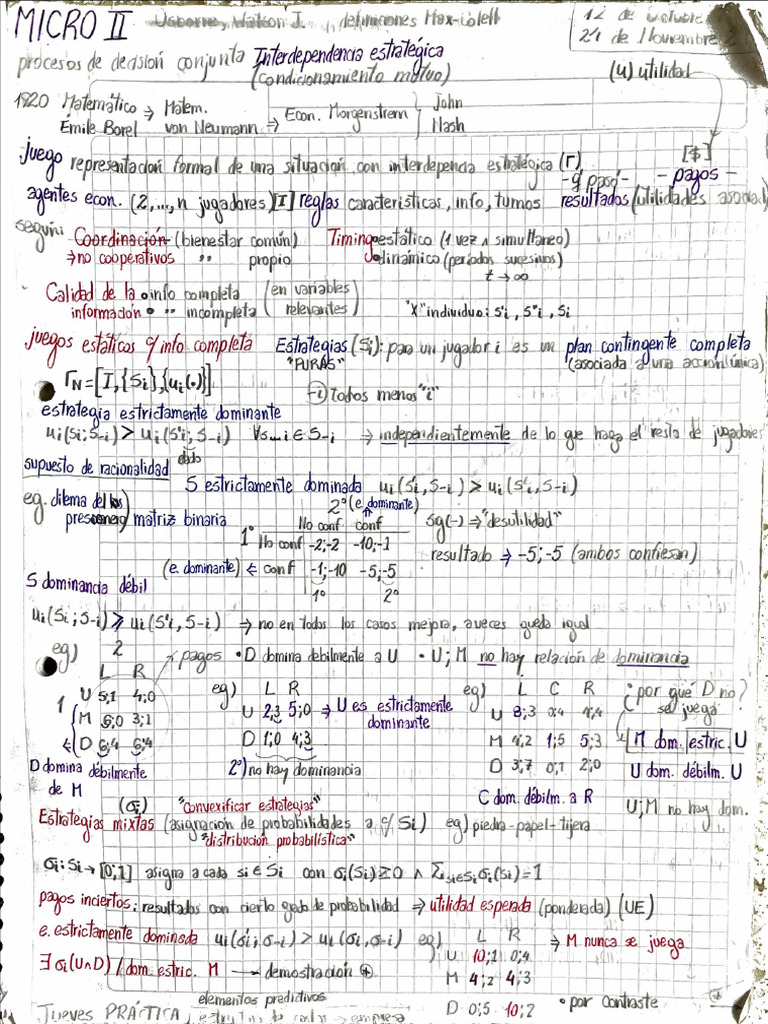 MICRO II Osborne, Watson J. , definiciones Max-colell
12 de octubre
21 de Noviembre
procesos de decisión conjunta Interdependencia estratégica
(condicionamiento mutuo) (u) utilidad
1920 Matemático → Matem. ⇒ Econ. Morgenstern John
Émile Borel von Neumann Nash
juego representación formal de una situación con interdepencia estratégica (Γ) [$]
- q pasó - - pagos -
agentes econ. (2,...,n jugadores)[I] reglas características, info, turnos resultados (utilidades asociad
según: Coordinación (bienestar común) Timing estático (1 vez ∧ simultaneo)
→ no cooperativos " propio dinámico (períodos sucesivos)
t → ∞
Calidad de la info completa (en variables
información " incompleta relevantes) "X" individuo: s'i , s''i , si
juegos estáticos c/ info completa Estrategias (Si): para un jugador i es un plan contingente completa
"PURAS" (asociada a una acción única)
ΓN = [I, {Si}, {ui(·)}] (-i) Todos menos "i"
estrategia estrictamente dominante
ui(si; s-i) > ui(s'i, s-i) ∀s-i ∈ S-i ⇒ independientemente de lo que haga el resto de jugadores
supuesto de racionalidad dado
S estrictamente dominada ui(s'i, s-i) > ui(si, s-i)
eg. dilema del
matriz binaria 2° (e. dominante)
No conf conf sg(-) ⇒ "desutilidad"
1° No conf -2;-2 -10;-1
resultado → -5;-5 (ambos confiesan)
(e. dominante) ← conf -1;-10 -5;-5
1° 2°
S dominancia débil
ui(si; s-i) ≥ ui(s'i, s-i) → no en todos los casos mejora, a veces queda igual
eg) 2 pagos • D domina debilmente a U • U; M no hay relación de dominancia
L R
1 U 5;1 4;0
M 6;0 3;1
D 6;4 6;4
eg) L R
U 2;3 5;0 ⇒ U es estrictamente dominante
D 1;0 4;3
2°) no hay dominancia
eg) L C R
U 8;3 0;4 4;4
M 4;2 1;5 5;3
D 3;7 0;1 2;0
¿por qué D no?
se juega
M dom. estric. U
U dom. débilm. U
U; M no hay dom.
D domina débilmente
de M
C dom. débilm. a R
(σi) "convexificar estrategias"
Estrategias mixtas (asignación de probabilidades a c/ Si) eg) piedra-papel-tijera
"distribución probabilística"
σi: Si → [0;1] asigna a cada si ∈ Si con σi(Si) ≥ 0 ∧ Σsi∈Si σi(si) = 1
pagos inciertos: resultados con cierto grado de probabilidad ⇒ utilidad esperada (ponderada) (UE)
e. estrictamente dominada ui(σ'i; σ-i) > ui(σi, σ-i) eg) L R ⇒ M nunca se juega
U 10;1 0;4
∃ σi(U∧D) / dom. estric. M — demostración
M 4;2 4;3
D 0;5 10;2 • por contraste
elementos predictivos
Jueves PRÁCTICA,